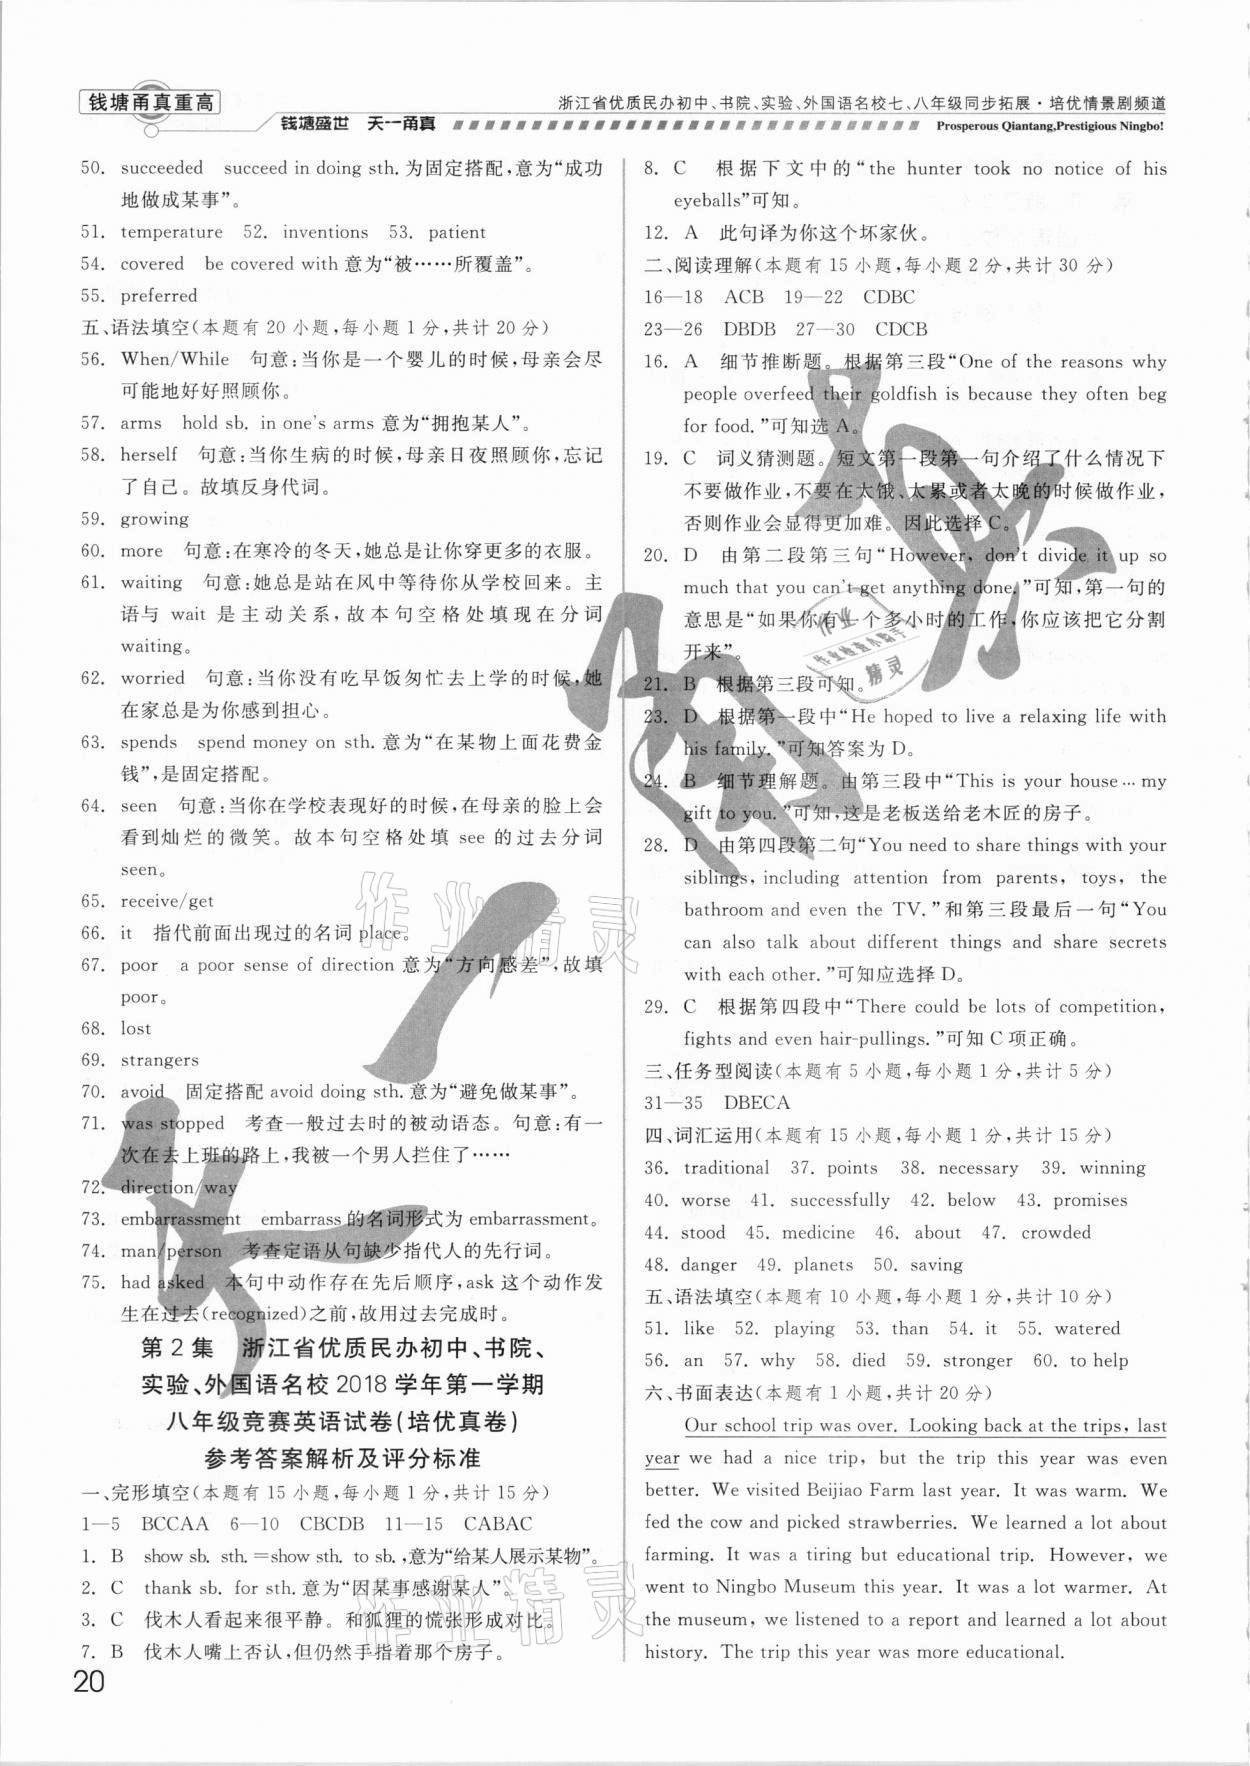 钱塘甬真重高
浙江省优质民办初中、书院、实验、外国语名校七、八年级同步拓展·培优情景剧频道
钱塘盛世 天一甬真
Prosperous Qiantang,Prestigious Ningbo!
50. succeeded succeed in doing sth.为固定搭配,意为“成功
地做成某事”。
51. temperature 52. inventions 53. patient
54. covered be covered with意为“被……所覆盖”。
55. preferred
五、语法填空(本题有20小题,每小题1分,共计20分)
56. When/While 句意:当你是一个婴儿的时候,母亲会尽
可能地好好照顾你。
57. arms hold sb. in one's arms意为“拥抱某人”。
58. herself 句意:当你生病的时候,母亲日夜照顾你,忘记
了自己。故填反身代词。
59. growing
60. more 句意:在寒冷的冬天,她总是让你穿更多的衣服。
61. waiting 句意:她总是站在风中等待你从学校回来。主
语与 wait 是主动关系,故本句空格处填现在分词
waiting。
62. worried 句意:当你没有吃早饭匆忙去上学的时候,她
在家总是为你感到担心。
63. spends spend money on sth.意为“在某物上面花费金
钱”,是固定搭配。
64. seen 句意:当你在学校表现好的时候,在母亲的脸上会
看到灿烂的微笑。故本句空格处填 see 的过去分词
seen。
65. receive/get
66. it 指代前面出现过的名词 place。
67. poor a poor sense of direction意为“方向感差”,故填
poor。
68. lost
69. strangers
70. avoid 固定搭配 avoid doing sth.意为“避免做某事”。
71. was stopped 考查一般过去时的被动语态。句意:有一
次在去上班的路上,我被一个男人拦住了……
72. direction/way
73. embarrassment embarrass的名词形式为 embarrassment。
74. man/person 考查定语从句缺少指代人的先行词。
75. had asked 本句中动作存在先后顺序,ask 这个动作发
生在过去(recognized)之前,故用过去完成时。
第2集 浙江省优质民办初中、书院、
实验、外国语名校2018学年第一学期
八年级竞赛英语试卷(培优真卷)
参考答案解析及评分标准
一、完形填空(本题有15小题,每小题1分,共计15分)
1—5 BCCAA 6—10 CBCDB 11—15 CABAC
1. B show sb. sth.=show sth. to sb.,意为“给某人展示某物”。
2. C thank sb. for sth.意为“因某事感谢某人”。
3. C 伐木人看起来很平静。和狐狸的慌张形成对比。
7. B 伐木人嘴上否认,但仍然手指着那个房子。
20
8. C 根据下文中的“the hunter took no notice of his
eyeballs”可知。
12. A 此句译为你这个坏家伙。
二、阅读理解(本题有15小题,每小题2分,共计30分)
16—18 ACB 19—22 CDBC
23—26 DBDB 27—30 CDCB
16. A 细节推断题。根据第三段“One of the reasons why
people overfeed their goldfish is because they often beg
for food.”可知选A。
19. C 词义猜测题。短文第一段第一句介绍了什么情况下
不要做作业,不要在太饿、太累或者太晚的时候做作业,
否则作业会显得更加难。因此选择C。
20. D 由第二段第三句“However, don't divide it up so
much that you can't get anything done.”可知,第一句的
意思是“如果你有一个多小时的工作,你应该把它分割
开来”。
21. B 根据第三段可知。
23. D 根据第一段中“He hoped to live a relaxing life with
his family.”可知答案为D。
24. B 细节理解题。由第三段中“This is your house … my
gift to you.”可知,这是老板送给老木匠的房子。
28. D 由第四段第二句“You need to share things with your
siblings, including attention from parents, toys, the
bathroom and even the TV.”和第三段最后一句“You
can also talk about different things and share secrets
with each other.”可知应选择D。
29. C 根据第四段中“There could be lots of competition,
fights and even hair-pullings.”可知C项正确。
三、任务型阅读(本题有5小题,每小题1分,共计5分)
31—35 DBECA
四、词汇运用(本题有15小题,每小题1分,共计15分)
36. traditional 37. points 38. necessary 39. winning
40. worse 41. successfully 42. below 43. promises
44. stood 45. medicine 46. about 47. crowded
48. danger 49. planets 50. saving
五、语法填空(本题有10小题,每小题1分,共计10分)
51. like 52. playing 53. than 54. it 55. watered
56. an 57. why 58. died 59. stronger 60. to help
六、书面表达(本题有1小题,共计20分)
Our school trip was over. Looking back at the trips, last
year we had a nice trip, but the trip this year was even
better. We visited Beijiao Farm last year. It was warm. We
fed the cow and picked strawberries. We learned a lot about
farming. It was a tiring but educational trip. However, we
went to Ningbo Museum this year. It was a lot warmer. At
the museum, we listened to a report and learned a lot about
history. The trip this year was more educational.
天一甬真
作业精灵
作业精灵
作业
作业检查小助手
精灵